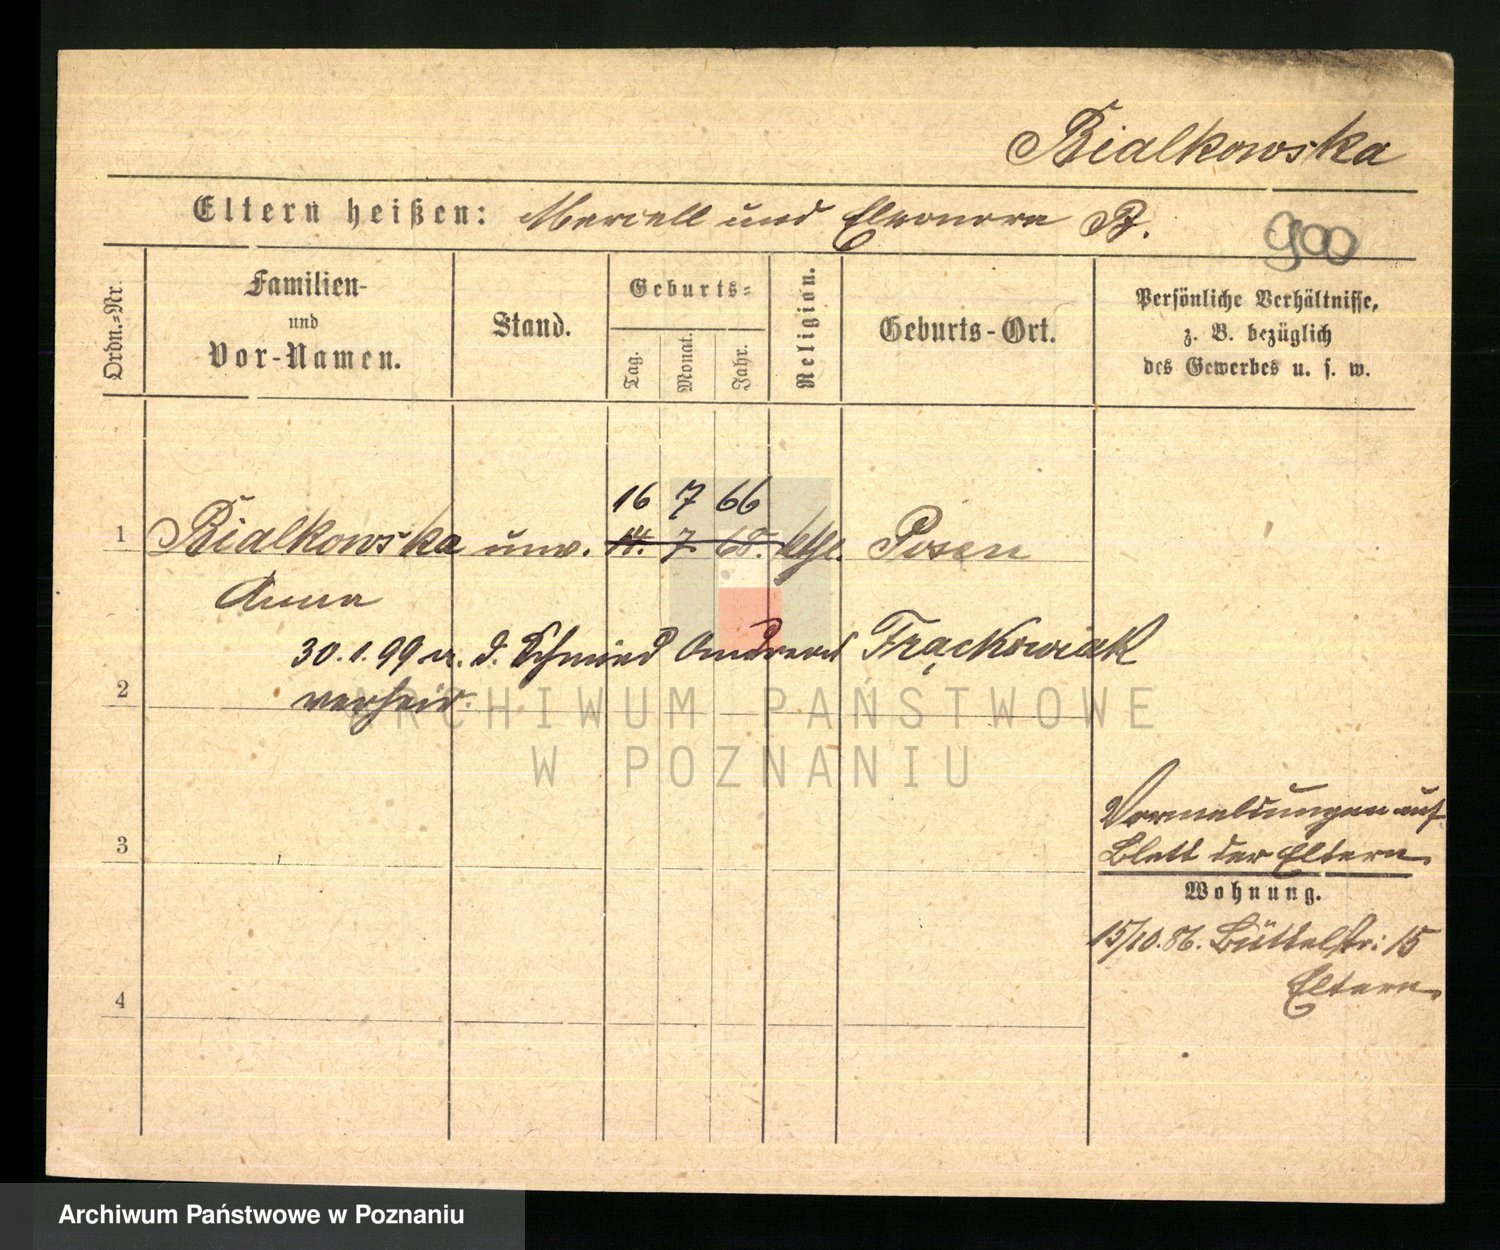 Bialkowska
Eltern heißen: Marcell und Eleonora B.
900
Ordn.=Nr.
Familien-
und
Vor-Namen.
Stand.
Geburts=
Tag.
Monat.
Jahr.
Religion.
Geburts-Ort.
Persönliche Verhältnisse,
z. B. bezüglich
des Gewerbes u. s. w.
16 7 66
1 Bialkowska unv. 14. 7. 68. kth. Posen
Anna
30.1.99 m. d. Schmied Andreas Frąckowiak
2 verheir.
ARCHIWUM PAŃSTWOWE
W POZNANIU
Vormeldungen auf
3 Blatt der Eltern.
Wohnung.
15/10.86. Büttelstr: 15
Eltern.
4
Archiwum Państwowe w Poznaniu